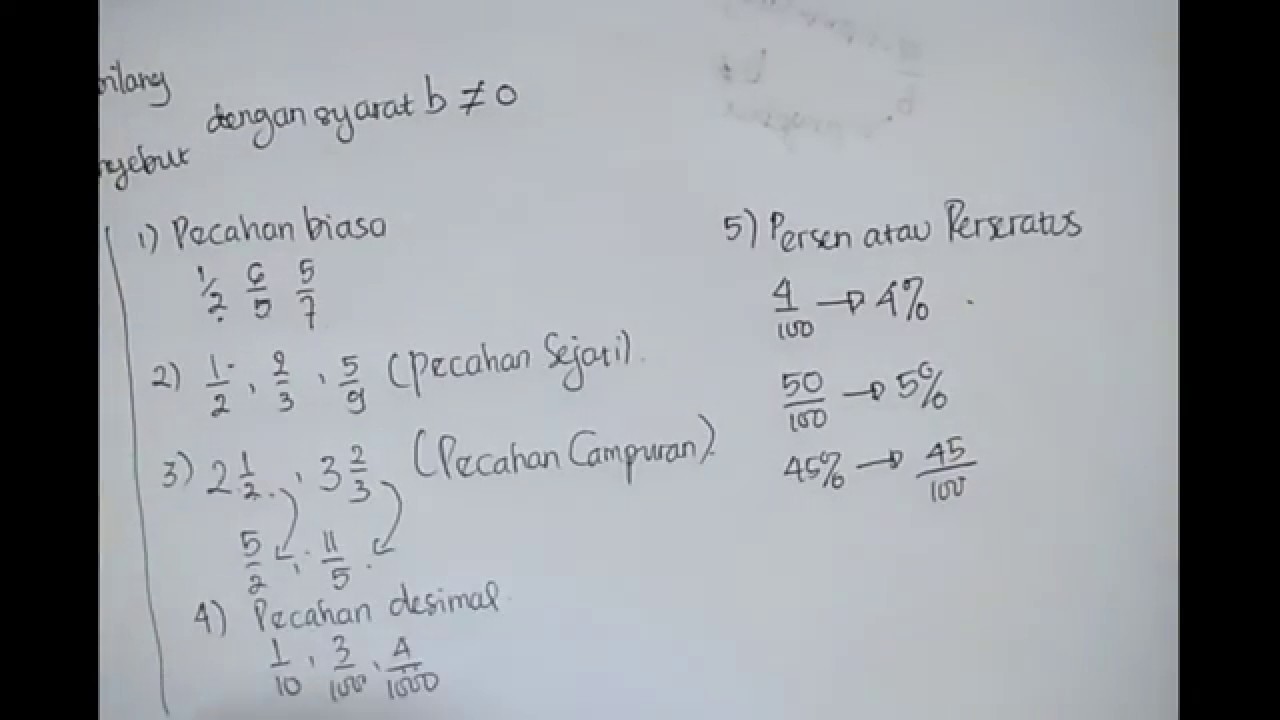 dengan syarat b ≠ 0
1) Pecahan biasa
1/2 6/5 5/7
2) 1/2, 2/3, 5/9 (Pecahan Sejati).
3) 2 1/2, 3 2/3 (Pecahan Campuran).
5/2, 11/5.
4) Pecahan desimal
1/10, 3/100, 4/1000
5) Persen atau Perseratus
4/100 → 4%
50/100 → 50%
45% → 45/100